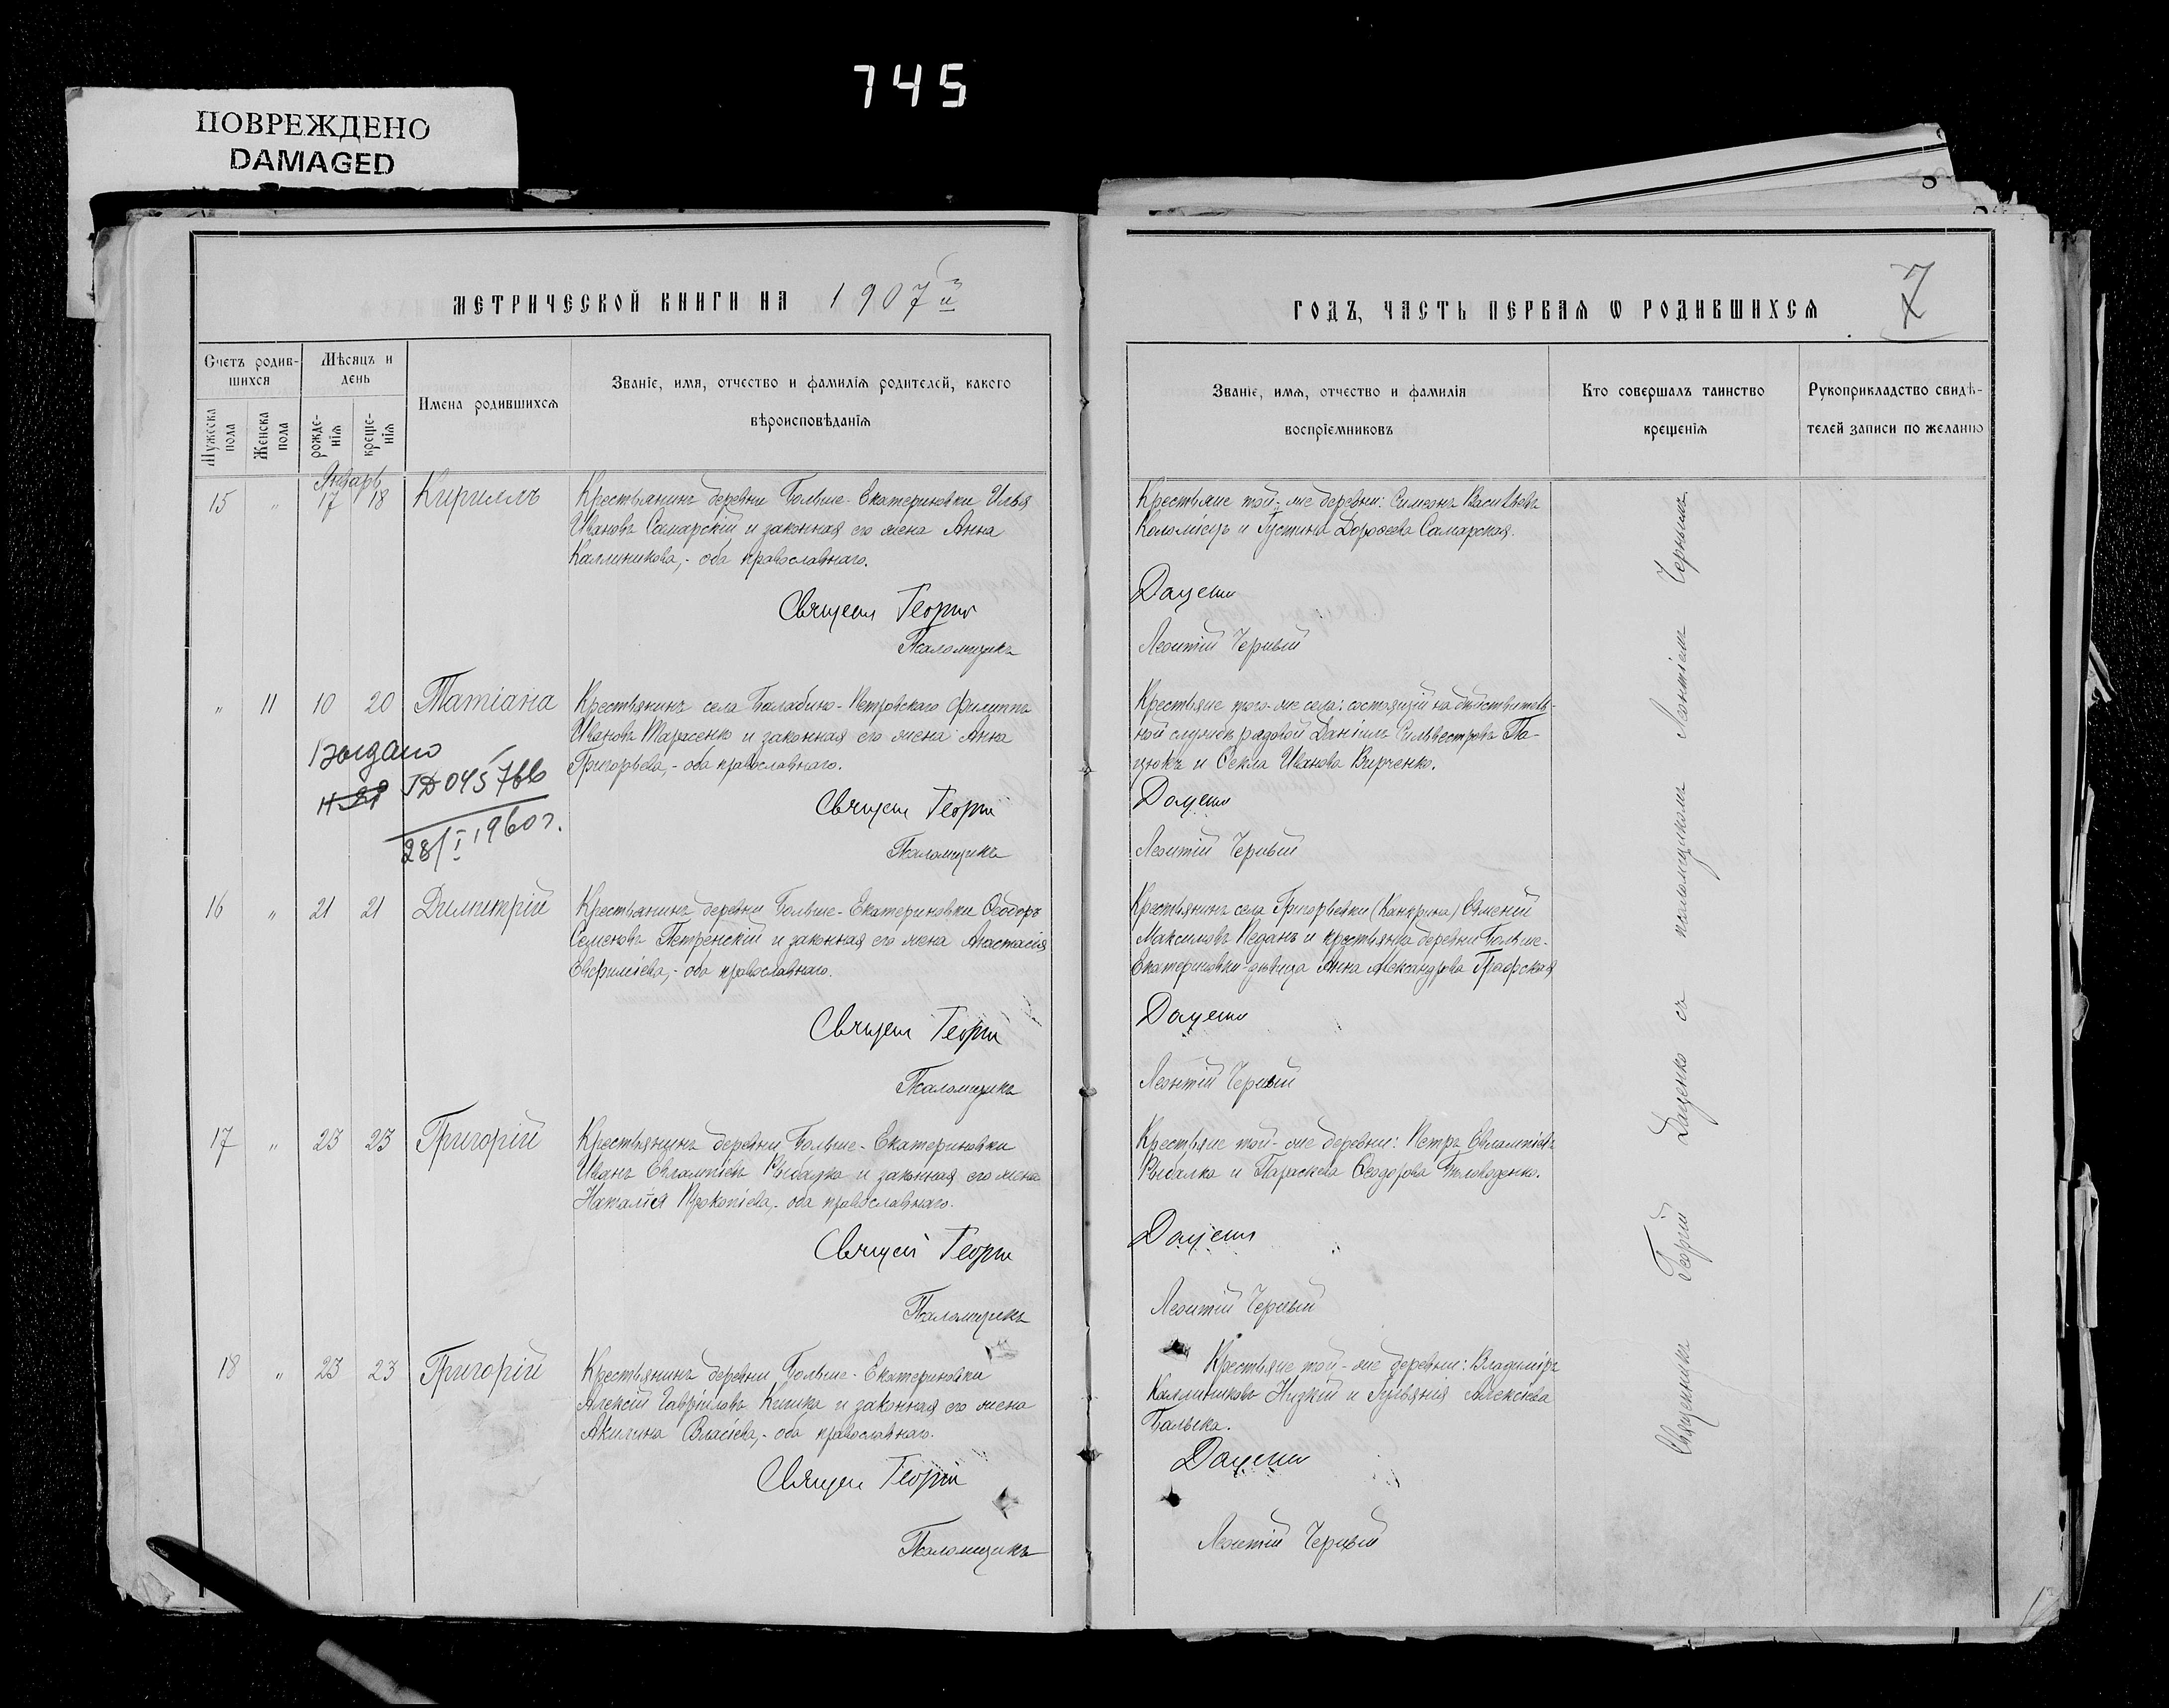 745
ПОВРЕЖДЕНО
DAMAGED
МЕТРИЧЕСКОЙ КНИГИ НА 1907й
ГОДЪ, ЧАСТЬ ПЕРВАЯ Ѡ РОДИВШИХСЯ
7
Счетъ родив-
шихся
Мѣсяцъ и
день
Имена родившихся
Званіе, имя, отчество и фамилія родителей, какого
вѣроисповѣданія
Мужеска
пола
Женска
пола
рожде-
нія
креще-
нія
Званіе, имя, отчество и фамилія
воспріемниковъ
Кто совершалъ таинство
крещенія
Рукоприкладство свидѣ-
телей записи по желанію
Январь
15 " 17 18 Кириллъ
Крестьянинъ деревни Больше-Екатериновки Илья
Ивановъ Самарскій и законная его жена Анна
Каллиникова,- оба православнаго.
Священ Георгій
Псаломщикъ
Крестьяне той-же деревни: Симеонъ Васильевъ
Коломіецъ и Іустина Дороѳеева Самарская.
Даценко
Леонтій Черный
" 11 10 20 Татіана
Крестьянинъ села Балабино-Петровскаго Филиппъ
Ивановъ Тарасенко и законная его жена Анна
Григорьева,- оба православнаго.
Священ Георгій
Псаломщикъ
Выдано
28/I 1960 г.
Крестьяне того-же села: состоящій на дѣйствитель-
ной службѣ рядовой Даніилъ Сильвестровъ Па-
цюкъ и Ѳекла Иванова Вирченко.
Даценко
Леонтій Черный
16 " 21 21 Димитрій
Крестьянинъ деревни Больше-Екатериновки Ѳеодоръ
Семеновъ Петренскій и законная его жена Анастасія
Евфиміева,- оба православнаго.
Священ Георгій
Псаломщикъ
Крестьянинъ села Григорьевки (Канкрина) Евменій
Максимовъ Педанъ и крестьянка деревни Больше-
Екатериновки-дѣвица Анна Александрова Графская
Даценко
Леонтій Черный
17 " 23 23 Григорій
Крестьянинъ деревни Больше-Екатериновки
Иванъ Евлампіевъ Рыбалка и законная его жена
Наталія Прокопіева,- оба православнаго.
Священ Георгій
Псаломщикъ
Крестьяне той-же деревни: Петръ Евлампіевъ
Рыбалка и Параскева Ѳеодорова
Даценко
Леонтій Черный
18 " 23 23 Григорій
Крестьянинъ деревни Больше-Екатериновки
Алексій Гавріиловъ Кишка и законная его жена
Акилина Власіева,- оба православнаго.
Священ Георгій
Псаломщикъ
Крестьяне той-же деревни: Владиміръ
Каллиниковъ Низкій и Іуліанія Алексіева
Балыка.
Даценко
Леонтій Черный
Священникъ Георгій Даценко съ псаломщикомъ Леонтіемъ Чернымъ